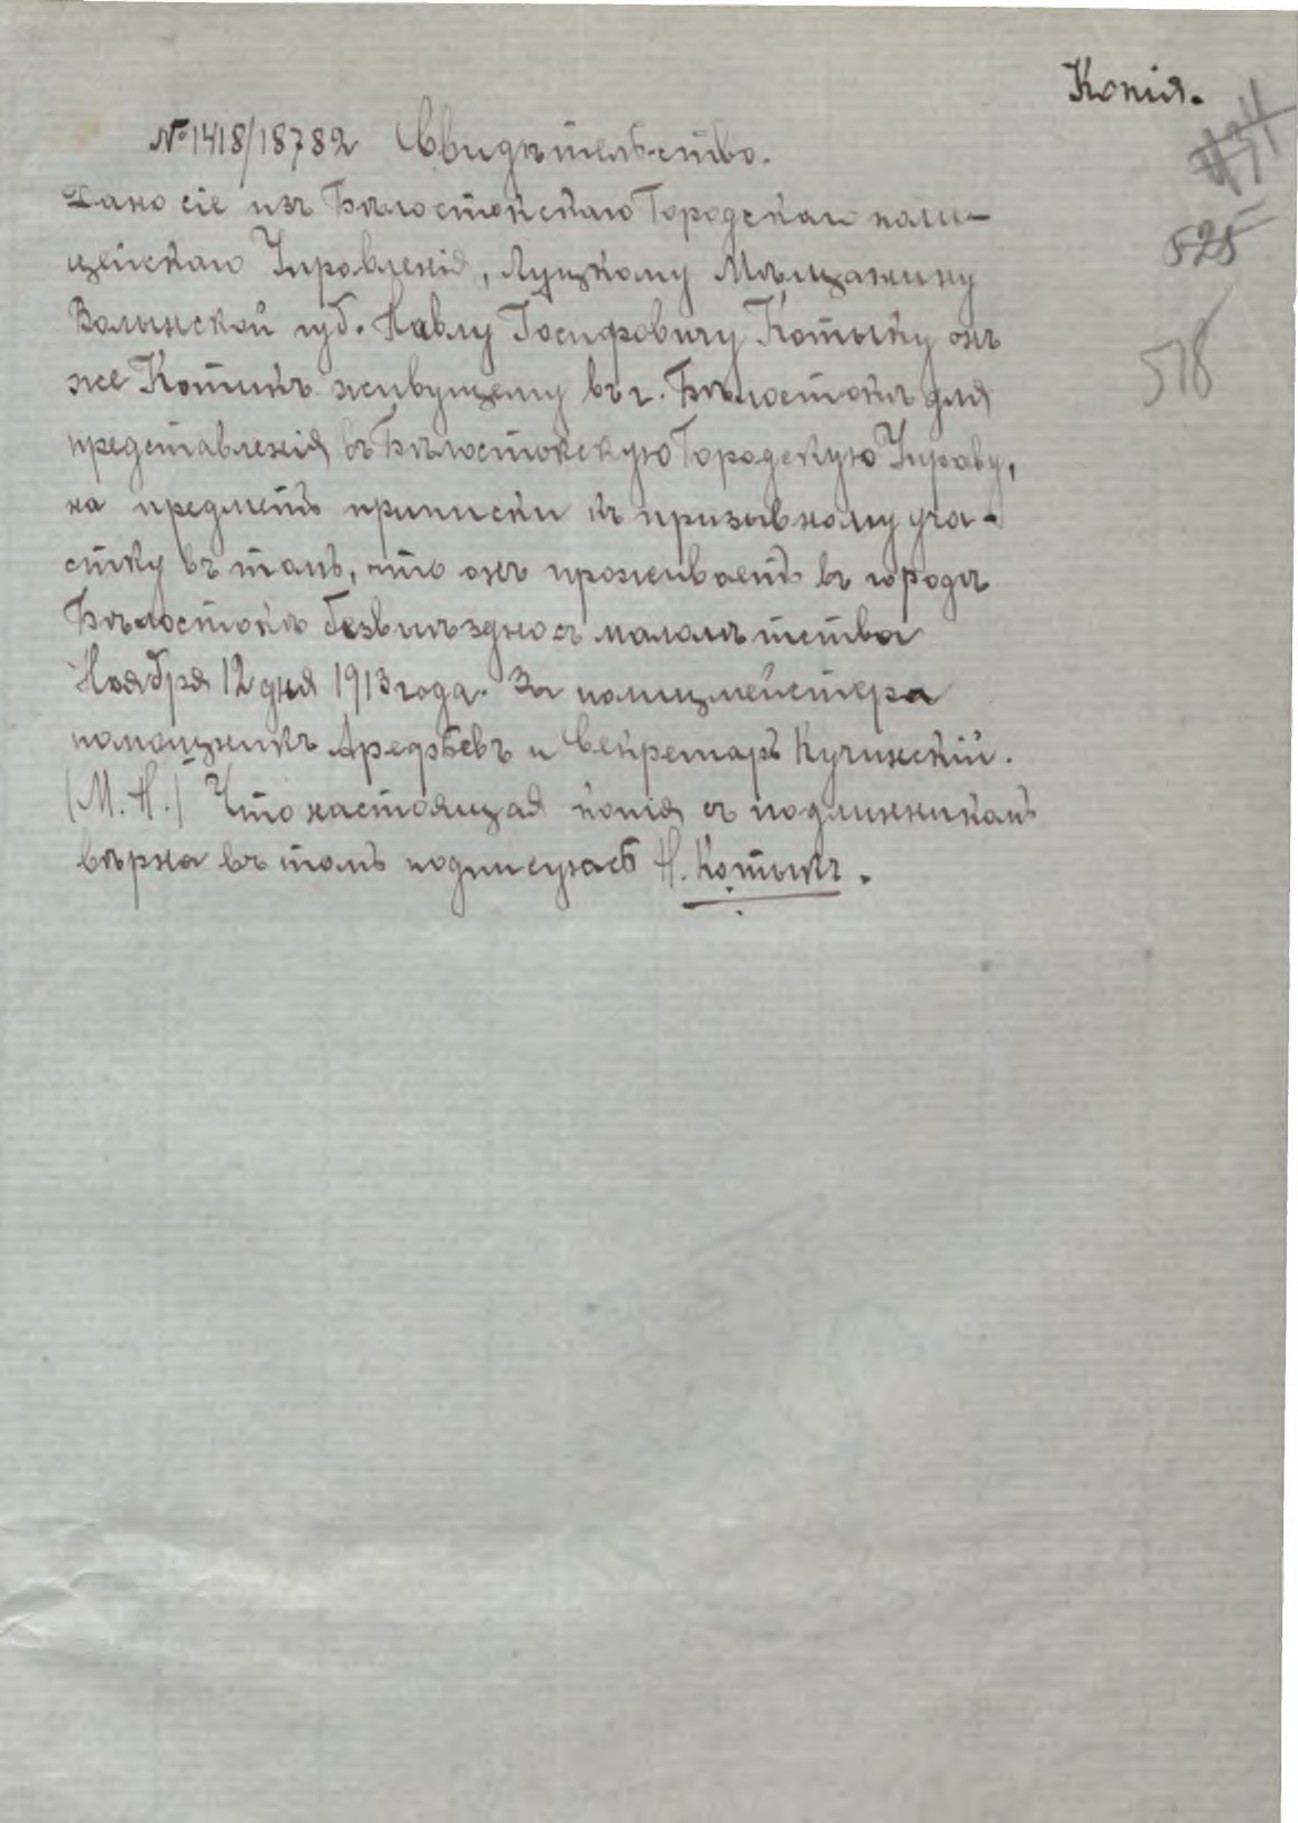 Копія.
№ 1418/18782 Свидѣтельство.
531
Дано сіе изъ Бѣлостокскаго Городскаго поли-
525
цейскаго Управленія, Луцкому Мѣщанину
Волынской губ. Павлу Іосифовичу Котыку онъ
518
же Котикъ живущему въ г. Бѣлостокѣ для
представленія въ Бѣлостокскую Городскую Управу,
на предметъ приписки къ призывному уча-
стку въ томъ, что онъ проживаетъ въ городѣ
Бѣлостокѣ безвыѣздно съ малолѣтства
Ноября 12 дня 1913 года. За полицмейстера
помощникъ Арефьевъ и Секретарь Кучинскій.
(М. П.) Что настоящая копія съ подлинникомъ
вѣрна въ томъ подписуюсь П. Котыкъ.